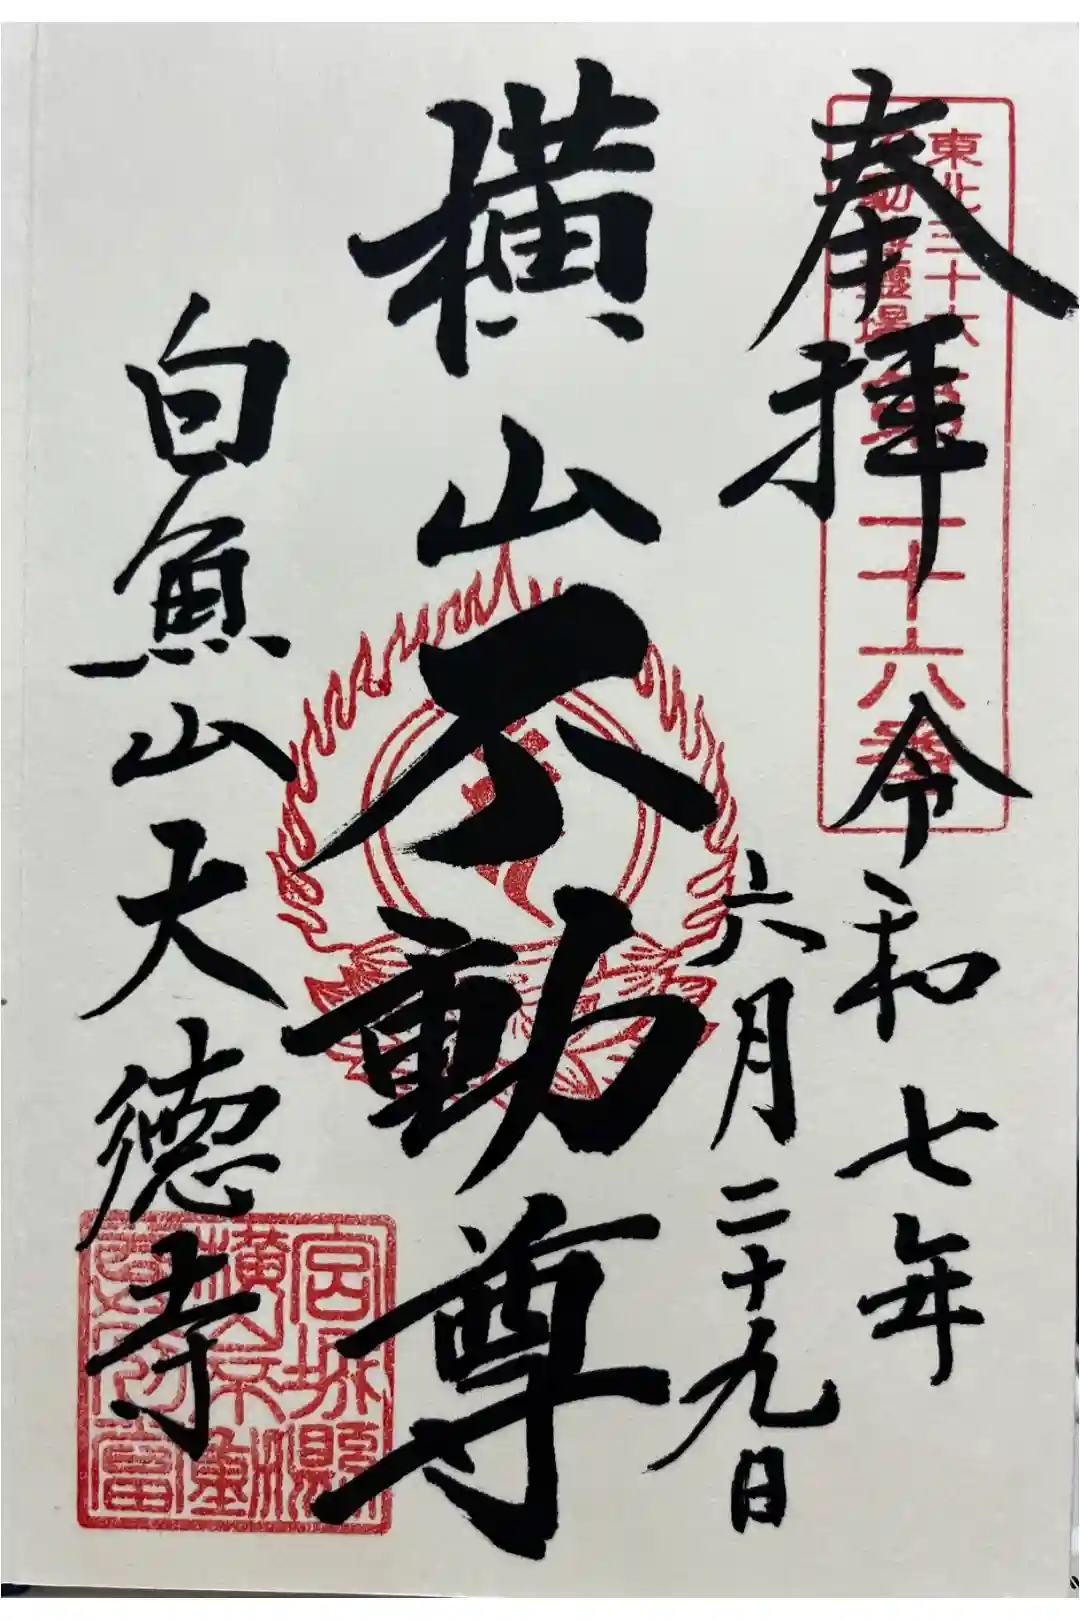 奉拝
東北三十六
不動尊霊場
第二十六番
令和七年
六月二十九日
横山不動尊
白魚山大徳寺
宮城縣
横山不動